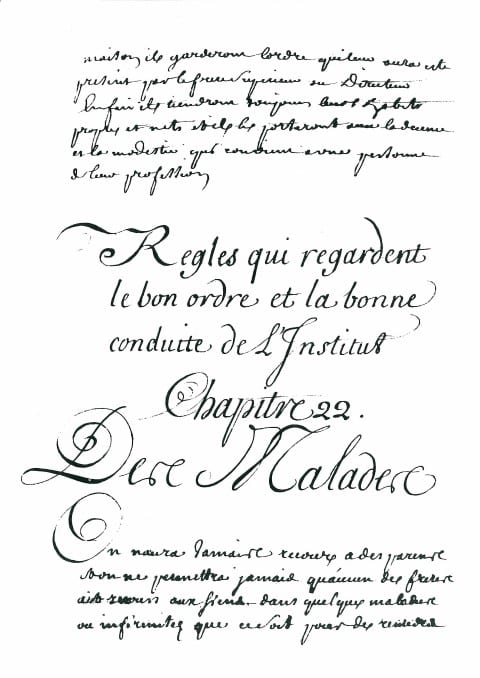 maison, ils garderont l'ordre qui leur aura esté
prescrit par le frere Superieur ou Directeur
Enfin ils tiendront toujours leurs habits
propres et nets et ils les porteront avec la decence
et la modestie qui convient a une personne
de leur profession
Regles qui regardent
le bon ordre et la bonne
conduitte de L'Institut
Chapitre 22.
Des Malades
On n'aura Jamais recours a des parens
et on ne permettra jamais qu'aucun des freres
ait recours aux siens dans quelques maladies
ou infirmités que ce soit pour des remedes